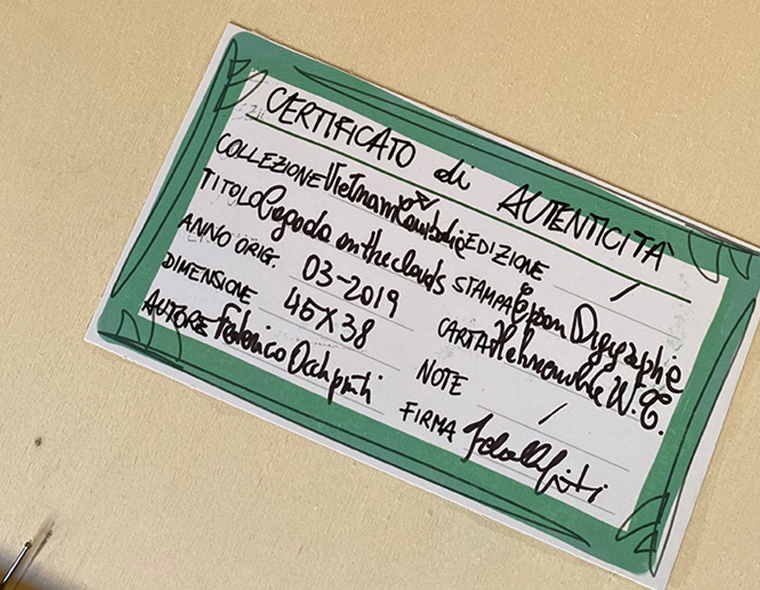 CERTIFICATO di AUTENTICITÀ
COLLEZIONE Vietnam Cambodia
TITOLO Pagoda on the clouds
ANNO ORIG. 03-2019
DIMENSIONE 45X38
AUTORE Federico Occhipinti
EDIZIONE /
STAMPA Epson Digigraphie
CARTA Hahnemühle W.T.
NOTE /
FIRMA